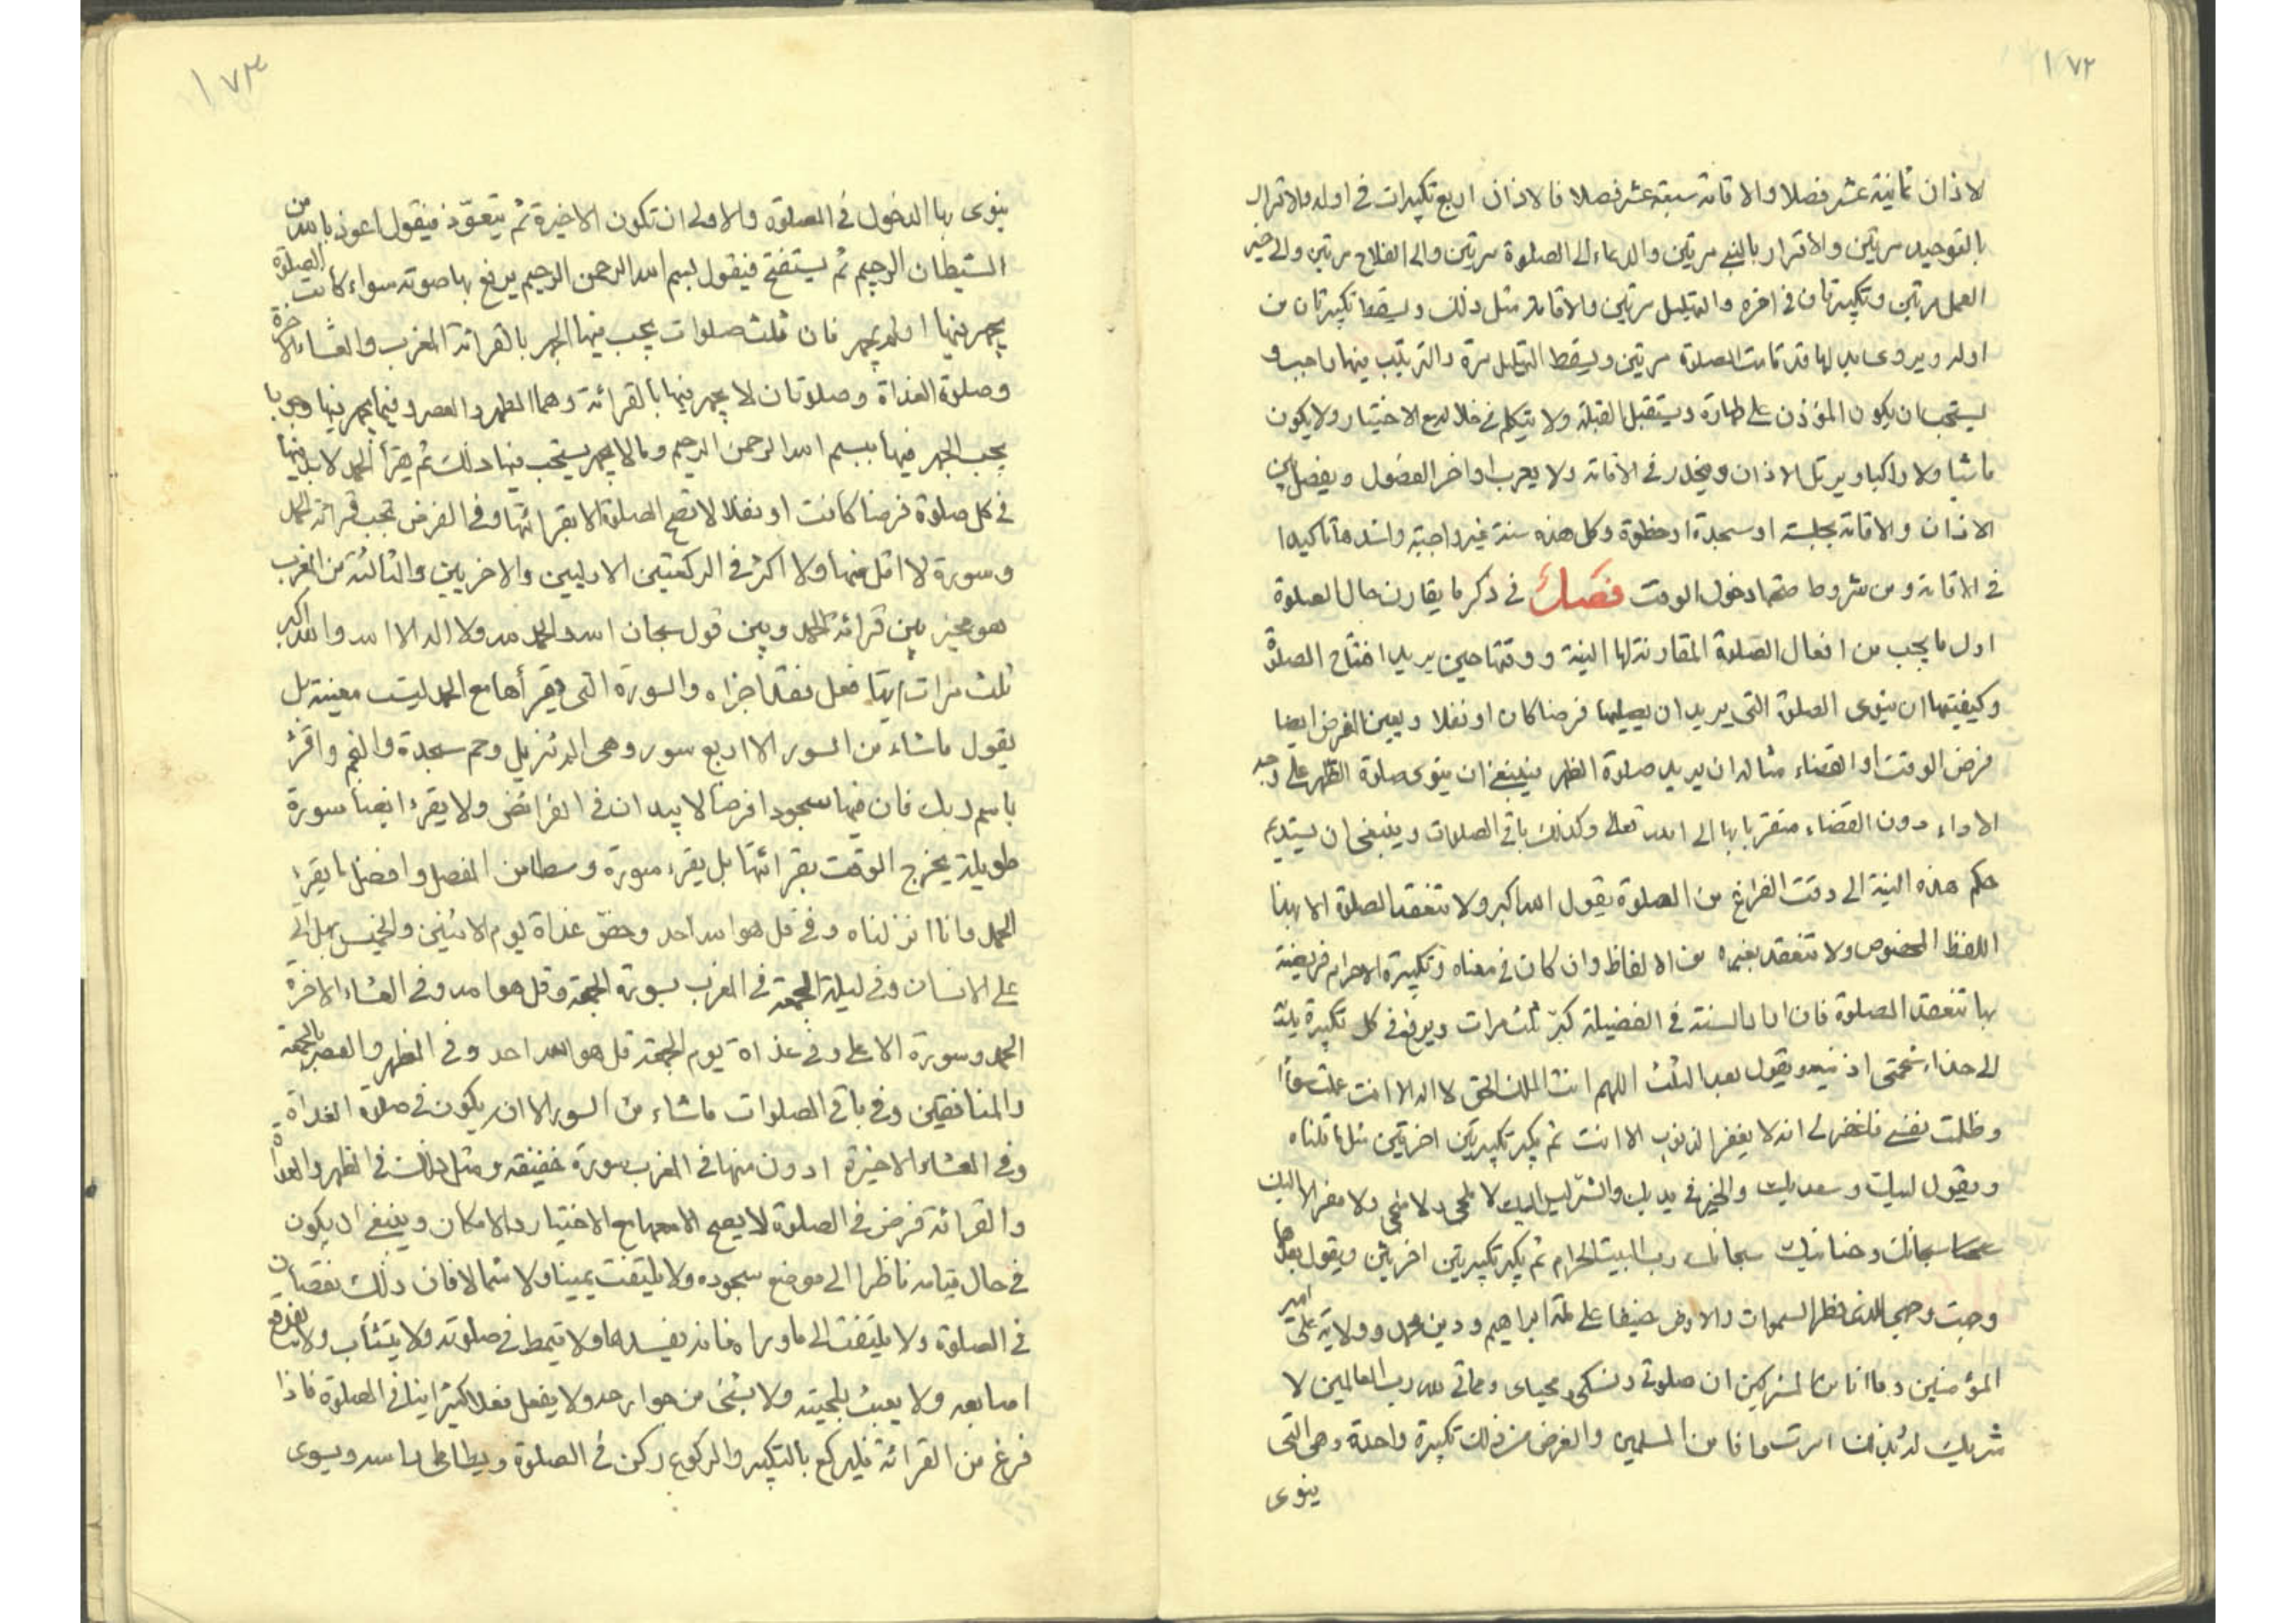 ١٧٢
لاذان ثمانية عشر فصلا والاقامة سبعة عشر فصلا فالاذان اربع تكبيرات في اوله والاقرار
بالتوحيد مرتين والاقرار بالنبي مرتين والدعاء الى الصلوة مرتين والى الفلاح مرتين والى خير
العمل مرتين وتكبيرتان في اخره والتهليل مرتين والاقامة مثل ذلك ويسقط تكبيرتان من
اوله ويروى بدلها قد قامت الصلوة مرتين ويسقط التهليل مرة والترتيب فيها واجب و
يستحب ان يكون المؤذن على طهارة ويستقبل القبلة ولا يتكلم في خلاله مع الاختيار ولا يكون
ماشيا ولا راكبا ويرتل الاذان ويحدر في الاقامة ولا يعرب اواخر الفصول ويفصل بين
الاذان والاقامة بجلسة او سجدة او خطوة وكل هذه سنة غير واجبة واشدها تاكيدا
في الاقامة ومن شروط صحتها دخول الوقت فصل في ذكر ما يقارن حال الصلوة
اول ما يجب من افعال الصلوة المقارنة لها النية ووقتها حين يريد افتتاح الصلوة
وكيفيتها ان ينوى الصلوة التي يريد ان يصليها فرضا كان او نفلا ويعين الفرض ايضا
فرض الوقت او القضاء مثاله ان يريد صلوة الظهر فينبغي ان ينوى صلوة الظهر على وجه
الاداء دون القضاء متقربا بها الى الله تعالى وكذلك باقي الصلوات وينبغي ان يستديم
حكم هذه النية الى وقت الفراغ من الصلوة يقول الله اكبر ولا تنعقد الصلوة الا بهذا
اللفظ المخصوص ولا تنعقد بغيره من الالفاظ وان كان في معناه وتكبيرة الاحرام فريضة
بها تنعقد الصلوة فان اراد السنة في الفضيلة كبر ثلث مرات ويرفع في كل تكبيرة يديه
الى حذاء شحمتى اذنيه ويقول بعد الثلث اللهم انت الملك الحق لا اله الا انت عملت سوءا
وظلمت نفسي فاغفر لى انه لا يغفر الذنوب الا انت ثم يكبر تكبيرتين اخرتين مثل ما قلناه
ويقول لبيك وسعديك والخير في يديك والشر ليس اليك لا ملجى ولا منجى ولا مفر الا اليك
سبحانك وحنانيك سبحانك رب البيت الحرام ثم يكبر تكبيرتين اخريين ويقول بعدها
وجهت وجهى للذى فطر السموات والارض حنيفا على ملة ابراهيم ودين محمد وولاية على امير
المؤمنين وما انا من المشركين ان صلوتى ونسكى ومحياى ومماتى لله رب العالمين لا
شريك له بذلك امرت وانا من المسلمين والفرض من ذلك تكبيرة واحدة وهي التى
ينوى
١٧٣
ينوى بها الدخول في الصلوة والاولى ان تكون الاخيرة ثم يتعوّذ فيقول اعوذ بالله من
الشيطان الرجيم ثم يستفتح فيقول بسم الله الرحمن الرحيم يرفع بها صوته سواء كانت الصلوة
يجهر فيها او لم يجهر فان ثلث صلوات يجب فيها الجهر بالقرائة المغرب والعشاء الاخرة
وصلوة الغداة وصلوتان لا يجهر فيها بالقرائة وهما الظهر والعصر وفيما يجهر فيها وجوبا
يجب الجهر فيها ببسم الله الرحمن الرحيم وما لا يجهر يستحب فيها ذلك ثم يقرأ الحمد لا بد منها
في كل صلوة فرضا كانت او نفلا لا تصح الصلوة الا بقرائتها وفي الفرض تجب قرائة الحمد
وسورة لا اقل منها ولا اكثر في الركعتين الاوليين والاخريين والثالثة من المغرب
هو مخير بين قرائة الحمد وبين قول سبحان الله والحمد لله ولا اله الا الله والله اكبر
ثلث مرات ايها فعل فقد اجزاه والسورة التي يقرأها مع الحمد ليست معينة بل
يقول ماشاء من السور الا اربع سور وهي الم تنزيل وحم سجدة والنجم واقرء
باسم ربك فان فيها سجودا فرضا لا يزدان في الفرائض ولا يقرء ايضا سورة
طويلة يخرج الوقت بقرائتها بل يقرء سورة وسطا من المفصل وافضل ما يقرء
الحمد وانا انزلناه وفي قل هو الله احد وخص غداة يوم الاثنين والخميس بهل اتى
على الانسان وفي ليلة الجمعة في المغرب بسورة الجمعة وقل هو الله وفي العشاء الاخرة
الحمد وسورة الاعلى وفي غداة يوم الجمعة قل هو الله احد وفي الظهر والعصر بالجمعة
والمنافقين وفي باقي الصلوات ماشاء من السور الا ان يكون في صلوة الغداة
وفي العشاء الاخيرة ادون منها في المغرب سورة خفيفة ومثل ذلك في الظهر والغداة
والقرائة فرض في الصلوة لا يصح الا معها مع الاختيار والامكان وينبغي ان يكون
في حال قيامه ناظرا الى موضع سجوده ولا يلتفت يمينا ولا شمالا فان ذلك نقصان
في الصلوة ولا يلتفت الى ماوراه فانه يفسدها ولا يتمطى في صلوته ولا يتثأب ولا يفرقع
اصابعه ولا يعبث بلحيته ولا بشئ من جوارحه ولا يفعل فعلا كثيرا ينافي الصلوة فاذا
فرغ من القرائة فليركع بالتكبير والركوع ركن في الصلوة ويطاطى راسه ويسوى